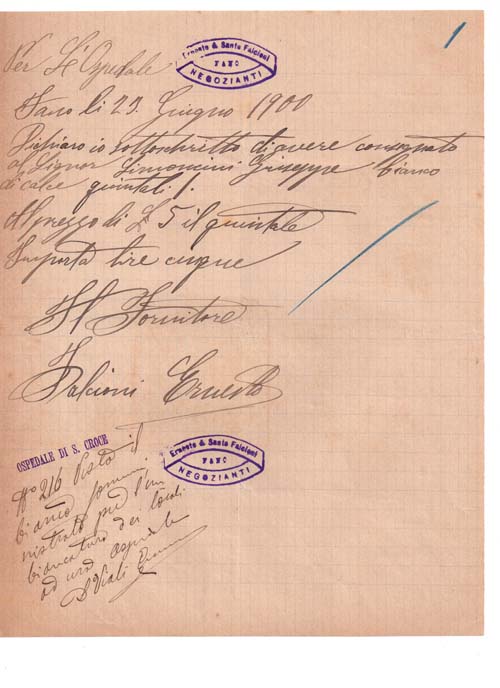 1
Ernesto & Sante Falcioni
FANO
NEGOZIANTI
Per L'Ospedale
Fano li 29. Giugno 1900
Dichiaro io sottoschritto di avere consegnato
al Signor Simoncini Giuseppe bianco
di calce quintali 1.
Al prezzo di £ 5 il quintale
Importa lire cinque
Il Fornitore
Falcioni Ernesto
Ernesto & Sante Falcioni
FANO
NEGOZIANTI
OSPEDALE DI S. CROCE
No 216 Visto il
bianco sommi
nistrato per l'im
biancatura dei locali
ad uso ospedale